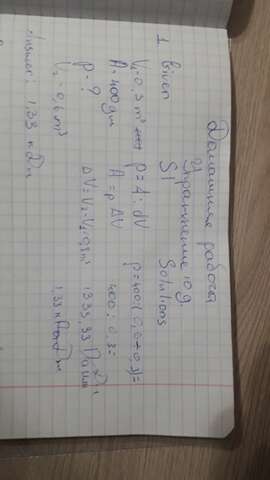 Домашняя работа
Упражнение 10 g.
1. Given SI Solutions
V₁=0,3 m³ p=A:dV p=400:(0,6+0,3)=
A=400 gm A=pΔV 400:0,3=
p=? ΔV=V₂-V₁=0,3m³ 1333,33
V₂=0,6 m³ 1,33
Answer: 1,33